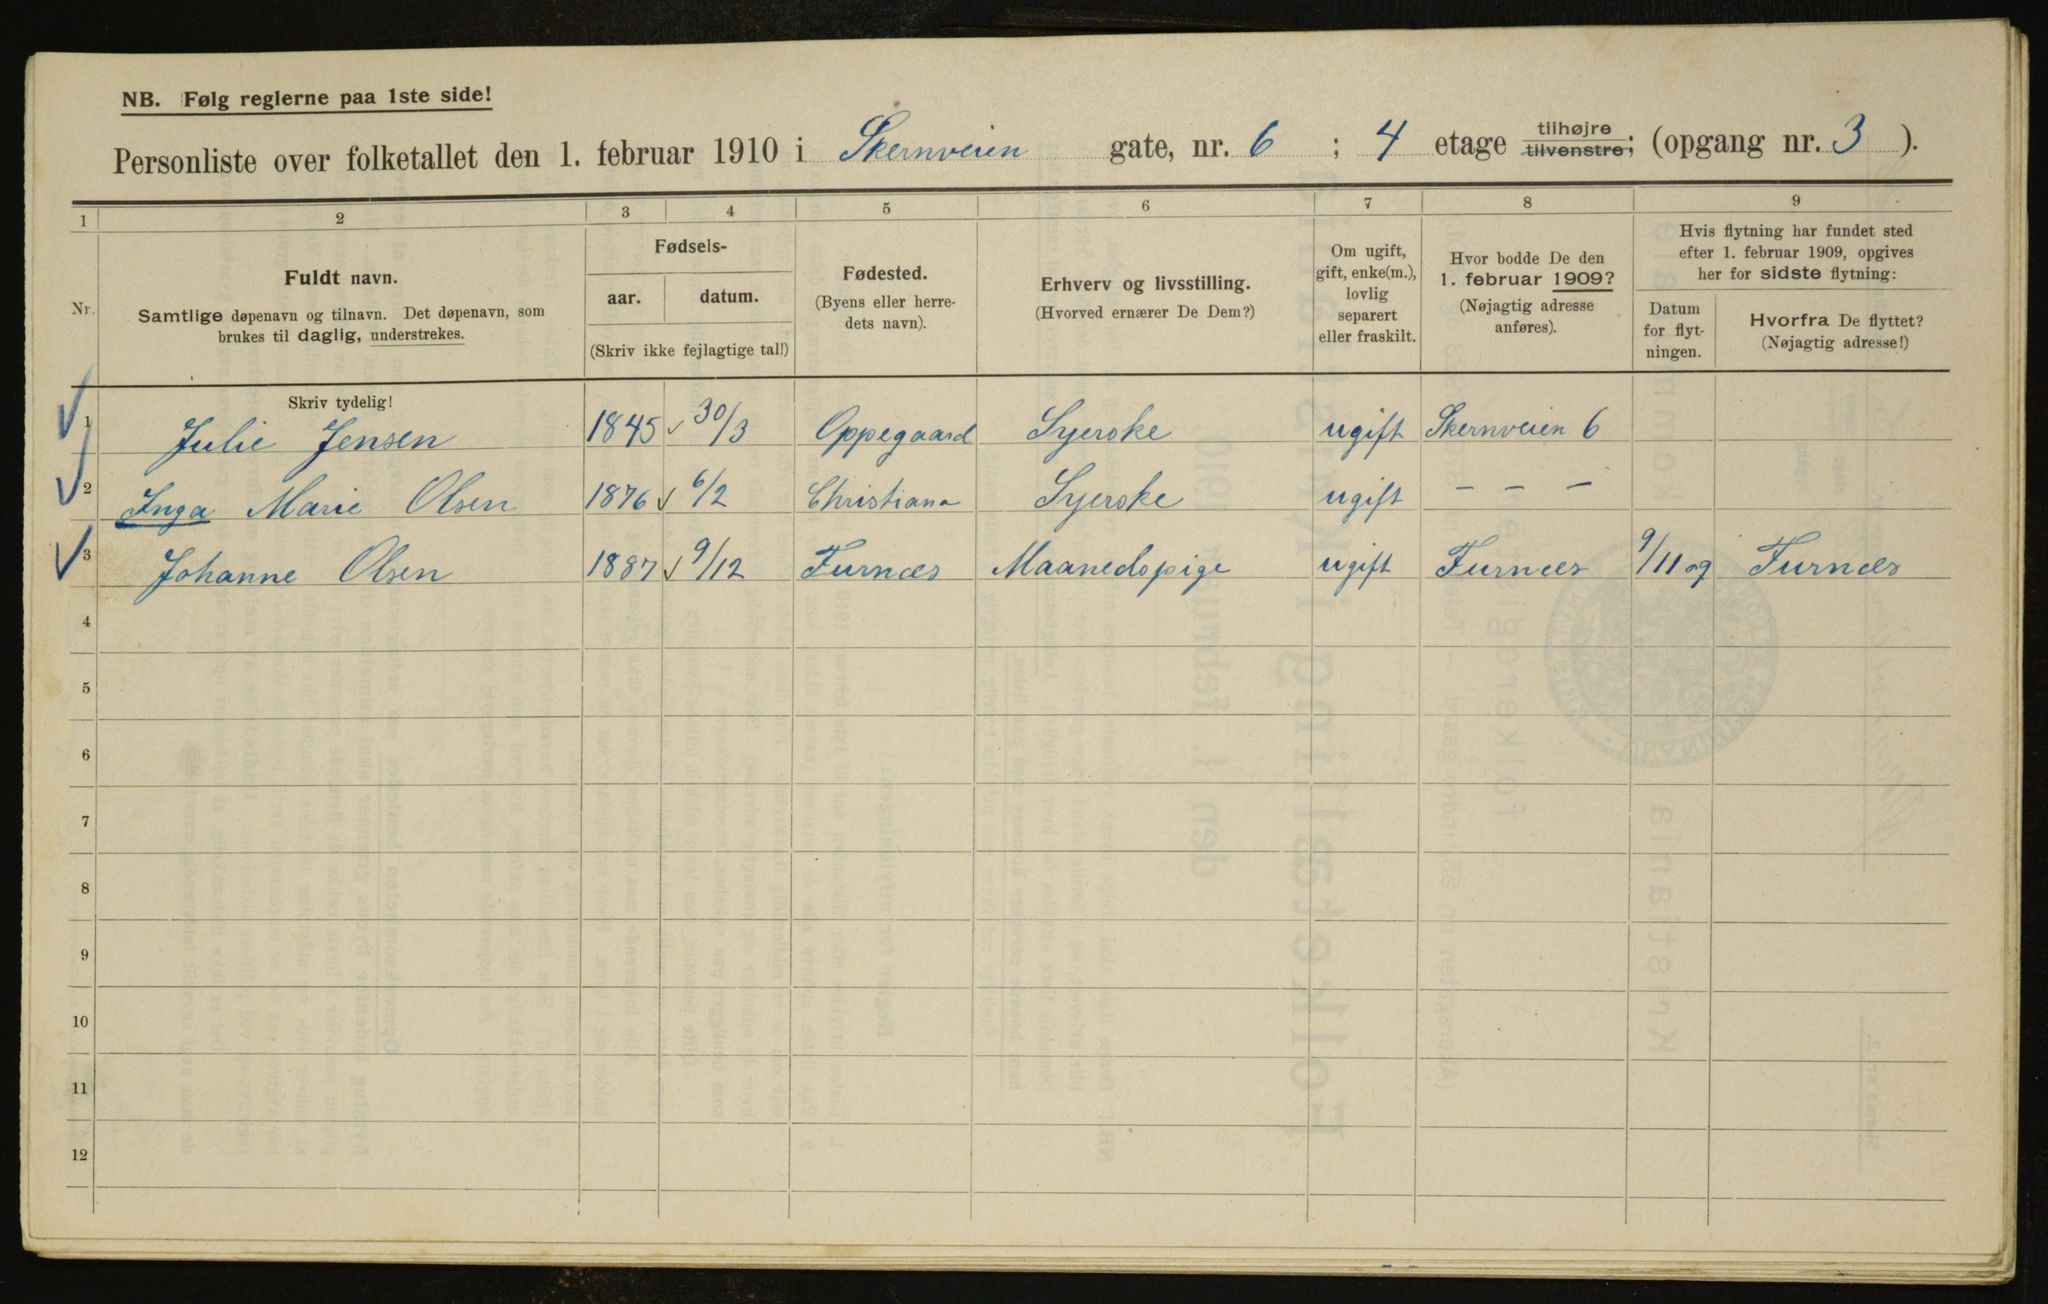 NB. Følg reglerne paa 1ste side!
Personliste over folketallet den 1. februar 1910 i Skernveien gate, nr. 6 ; 4 etage tilhøjre tilvenstre; (opgang nr. 3 ).
1 2 3 4 5 6 7 8 9
Nr.
Fuldt navn.
Samtlige døpenavn og tilnavn. Det døpenavn, som
brukes til daglig, understrekes.
Fødsels-
aar. datum.
(Skriv ikke fejlagtige tal!)
Fødested.
(Byens eller herre-
dets navn).
Erhverv og livsstilling.
(Hvorved ernærer De Dem?)
Om ugift,
gift, enke(m.),
lovlig
separert
eller fraskilt.
Hvor bodde De den
1. februar 1909?
(Nøjagtig adresse
anføres).
Hvis flytning har fundet sted
efter 1. februar 1909, opgives
her for sidste flytning:
Datum
for flyt-
ningen.
Hvorfra De flyttet?
(Nøjagtig adresse!)
Skriv tydelig!
1 Julie Jensen 1845 30/3 Oppegaard Syerske ugift Skernveien 6
2 Inga Marie Olsen 1876 6/2 Christiana Syerske ugift – – –
3 Johanne Olsen 1887 9/12 Furnæs Maanedspige ugift Furnæs 9/11 09 Furnæs
4
5
6
7
8
9
10
11
12